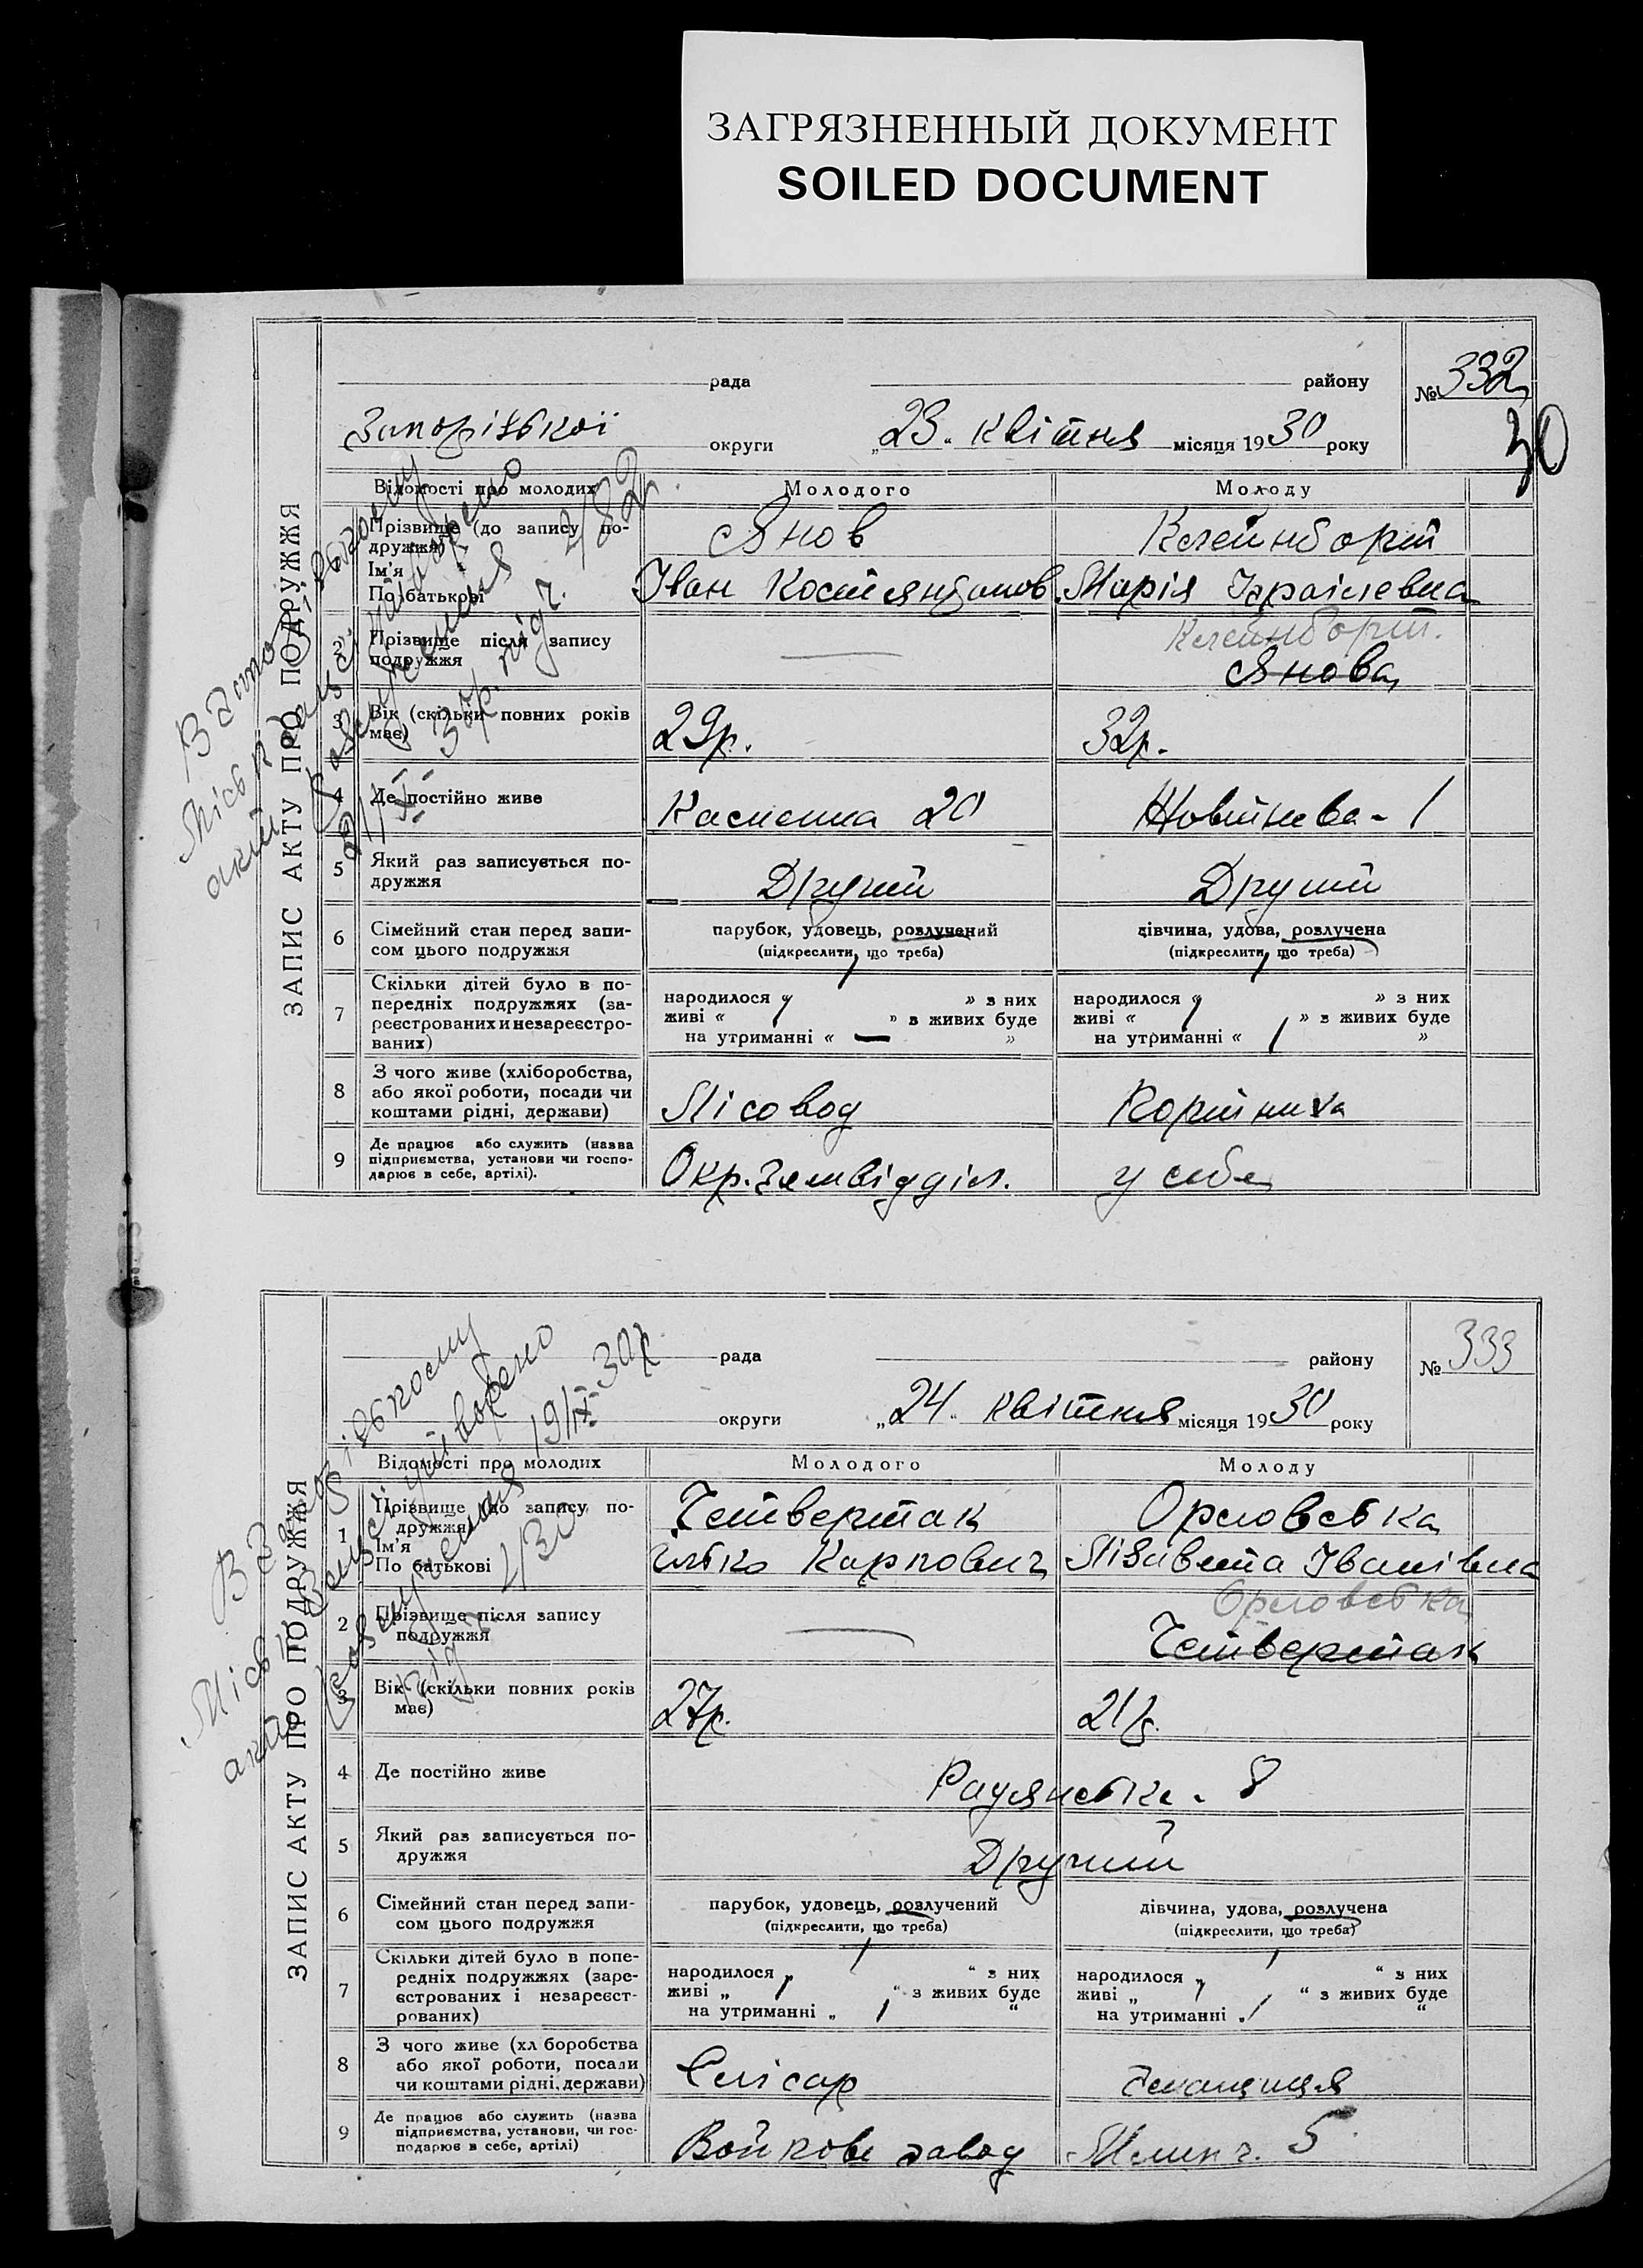 ЗАГРЯЗНЕННЫЙ ДОКУМЕНТ
SOILED DOCUMENT
ЗАПИС АКТУ ПРО ПОДРУЖЖЯ
рада району № 332
30
Запорізької округи „23" квітня місяця 1930 року
Відомості про молодих Молодого Молоду
Прізвище (до запису по-
дружжя)
Ім'я
По батькові
Янов Клейнборт
Іван Костянтинов. Марія Ізраілевна
2 Прізвище після запису
подружжя
— Клейнборт.
Янова
3 Вік (скільки повних років
має)
29р. 32р.
4 Де постійно живе
20 Жовтнева - 1
5 Який раз записується по-
дружжя
Другий Другий
6 Сімейний стан перед запи-
сом цього подружжя
парубок, удовець, розлучений дівчина, удова, розлучена
(підкреслити, що треба) (підкреслити, що треба)
7 Скільки дітей було в по-
передніх подружжях (за-
реєстрованих и незареєстро-
ваних)
народилося „ » з них народилося „ » з них
живі « » з живих буде живі « » з живих буде
на утриманні « — » на утриманні « »
8 З чого живе (хліборобства,
або якої роботи, посади чи
коштами рідні, держави)
Лісовод
9 Де працює або служить (назва
підприємства, установи чи госпо-
дарює в себе, артілі).
Окр. Земвідділ. у себе
ЗАПИС АКТУ ПРО ПОДРУЖЖЯ
рада району № 333
округи „24" квітня місяця 1930 року
Відомості про молодих Молодого Молоду
1 Прізвище (до запису по-
дружжя)
Ім'я
По батькові
Четвертак Орловська
Ілько Карпович Лізавета Іванівна
2 Прізвище після запису
подружжя
— Орловська
Четвертак
3 Вік (скільки повних років
має)
27р. 21р.
4 Де постійно живе
Радянська - 8
5 Який раз записується по-
дружжя
Другий
6 Сімейний стан перед запи-
сом цього подружжя
парубок, удовець, розлучений дівчина, удова, розлучена
(підкреслити, що треба) (підкреслити, що треба)
7 Скільки дітей було в попе-
редніх подружжях (заре-
єстрованих і незареєст-
рованих)
народилося „ “ з них народилося „ “ з них
живі „ “ з живих буде живі „ “ з живих буде
на утриманні „ “ на утриманні „ “
8 З чого живе (хл боробства
або якої роботи, посади
чи коштами рідні, держави)
Слісар
9 Де працює або служить (назва
підприємства, установи, чи гос-
подарює в себе, артілі)
Войкова завод 5